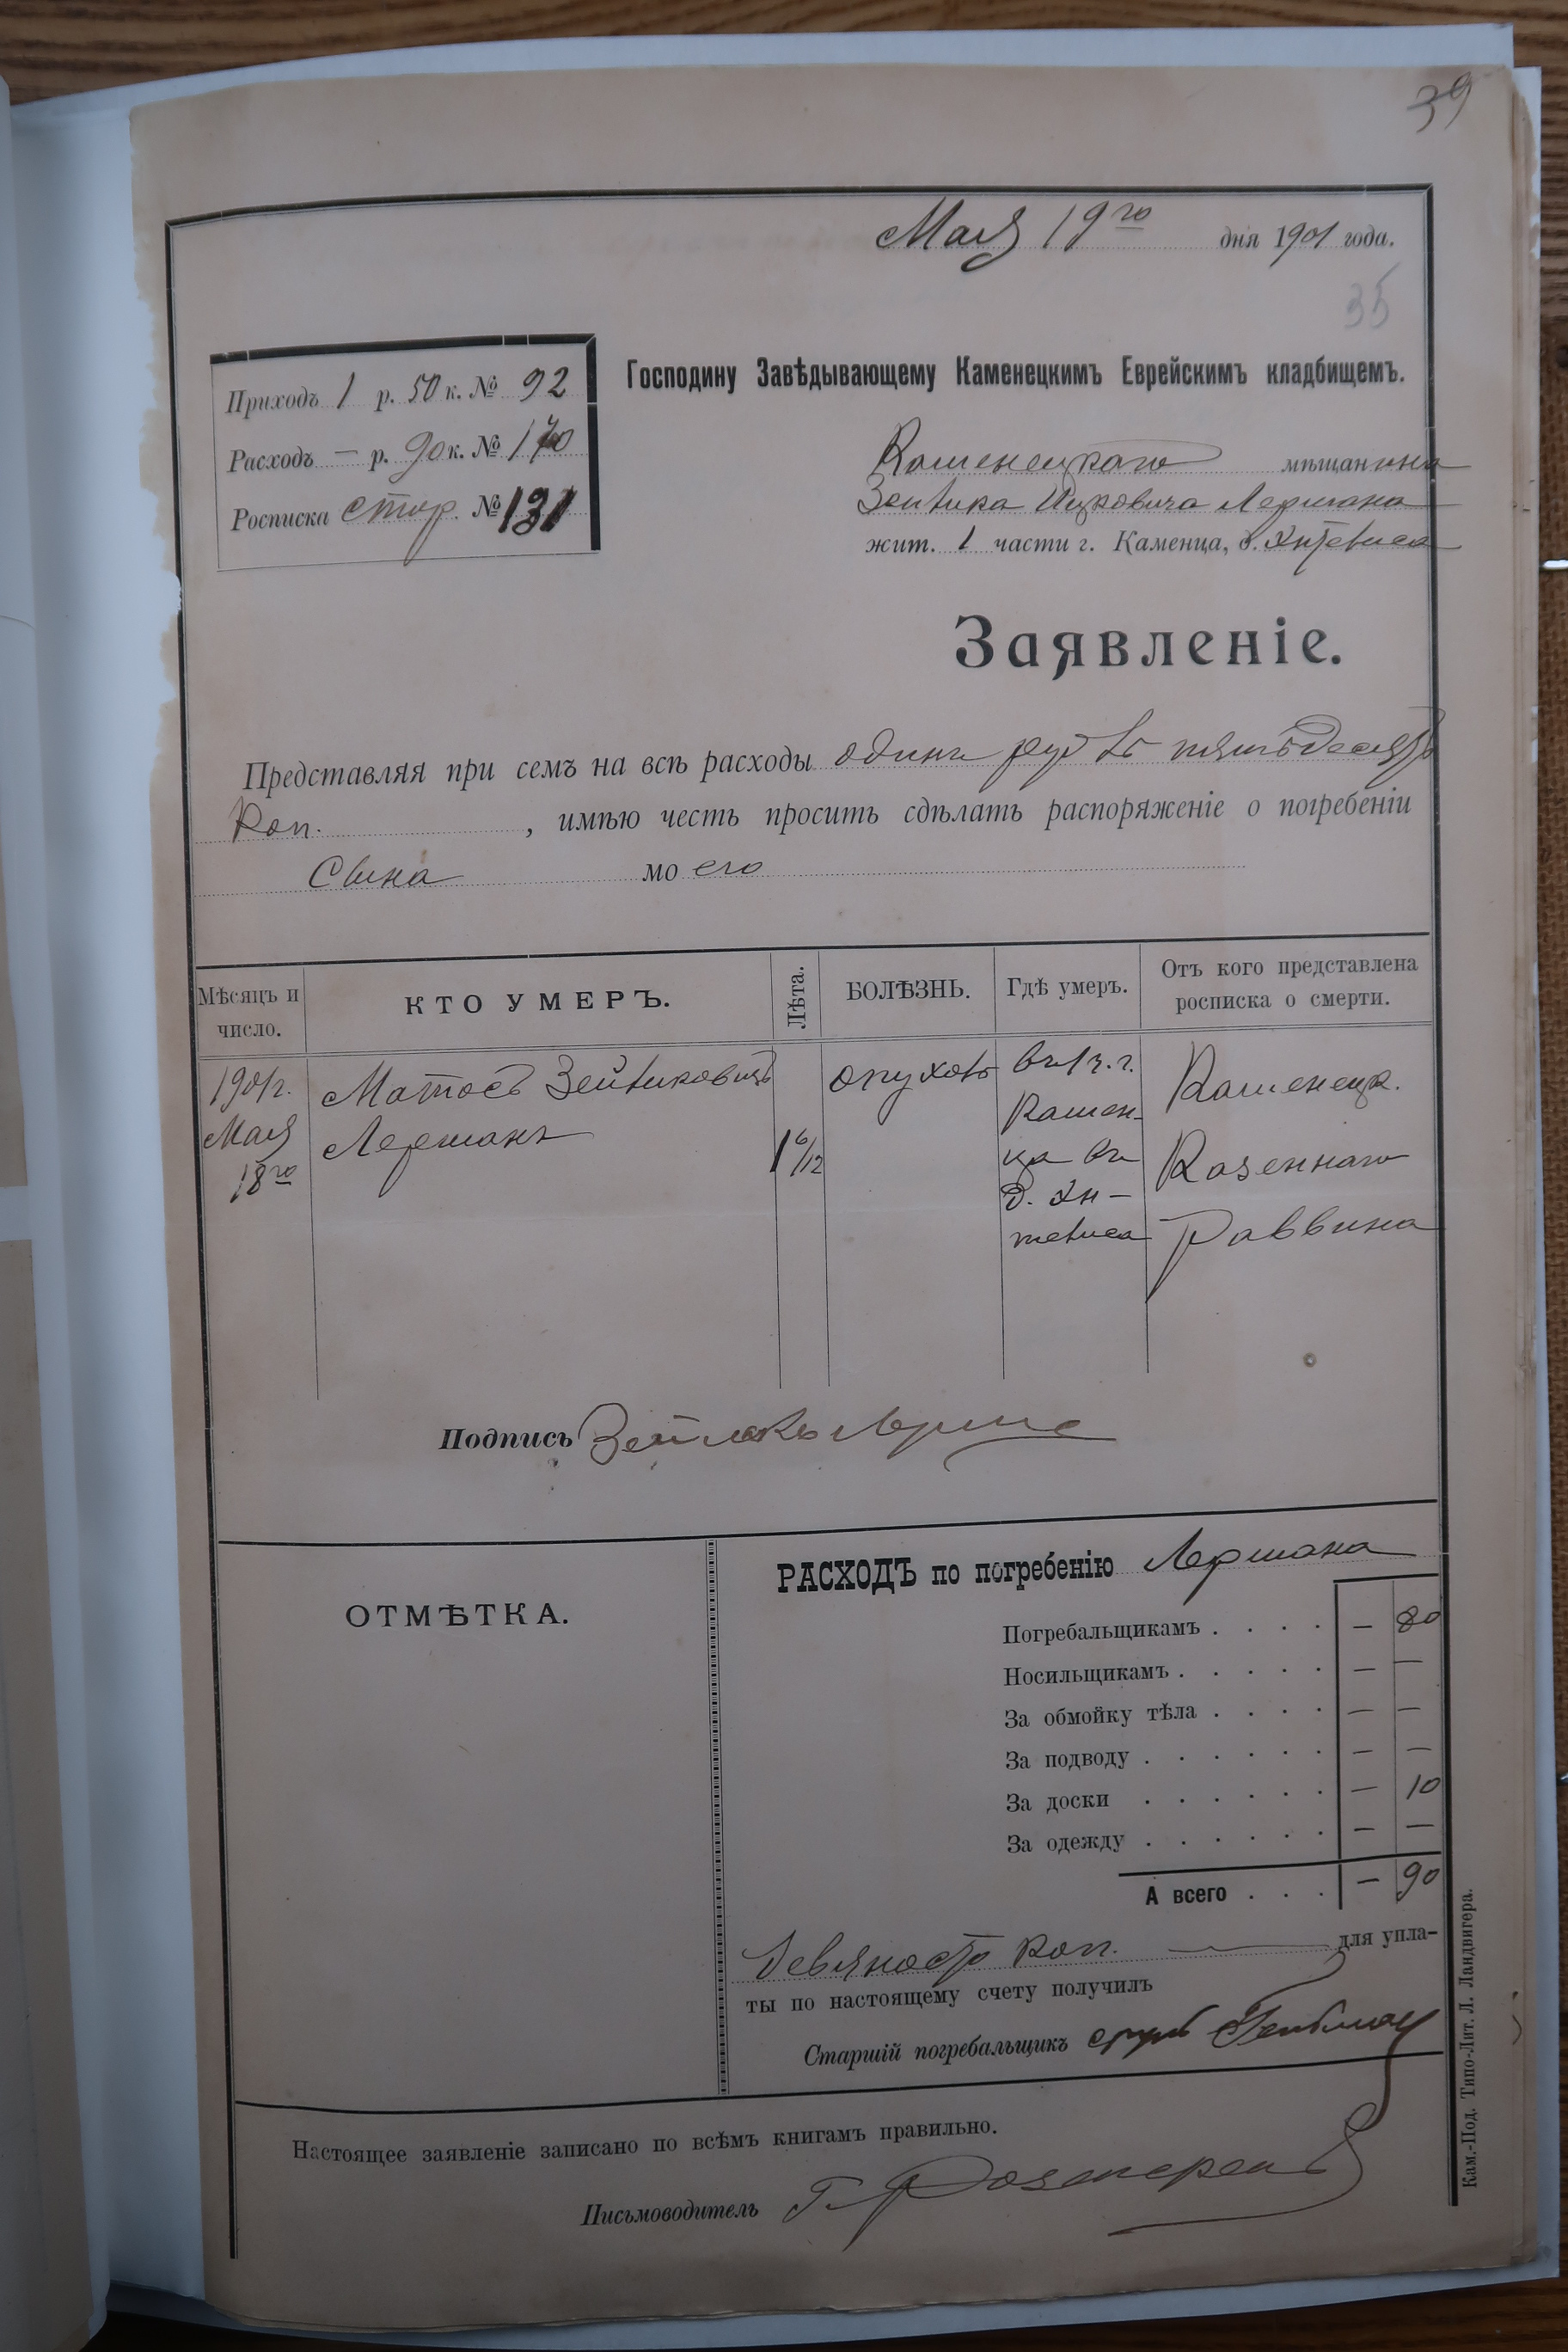 39
Мая 19го дня 1901 года.
35
Приходъ 1 р. 50 к. № 92
Расходъ — р. 90 к. № 170
Росписка стар. № 131
Господину Завѣдывающему Каменецкимъ Еврейскимъ кладбищемъ.
Каменецкаго мѣщанина
Зейлика Ицковича Лермана
жит. 1 части г. Каменца, д.
Заявленіе.
Представляя при семъ на всѣ расходы одинъ руб. пятьдесятъ
Коп. , имѣю честь просить сдѣлать распоряженіе о погребеніи
Сына моего
Мѣсяцъ и число.
КТО УМЕРЪ.
Лѣта.
БОЛѢЗНЬ.
Гдѣ умеръ.
Отъ кого представлена росписка о смерти.
1901г.
Мая
18го
Матосъ Зейликовичъ
Лерманъ
1 6/12
опухоль
въ 1 ч. г.
Камен-
ца въ
д.
Каменецк.
Казеннаго
Раввина
Подпись Зейликъ
ОТМѢТКА.
РАСХОДЪ по погребенію Лермана
Погребальщикамъ . . . . — 80
Носильщикамъ . . . . . — —
За обмойку тѣла . . . . — —
За подводу . . . . . . — —
За доски . . . . . . — 10
За одежду . . . . . . — —
А всего . . . — 90
Девяносто коп. — для упла-
ты по настоящему счету получилъ
Старшій погребальщикъ
Настоящее заявленіе записано по всѣмъ книгамъ правильно.
Письмоводитель Г.
Кам.-Под. Типо-Лит. Л. Ландвигера.